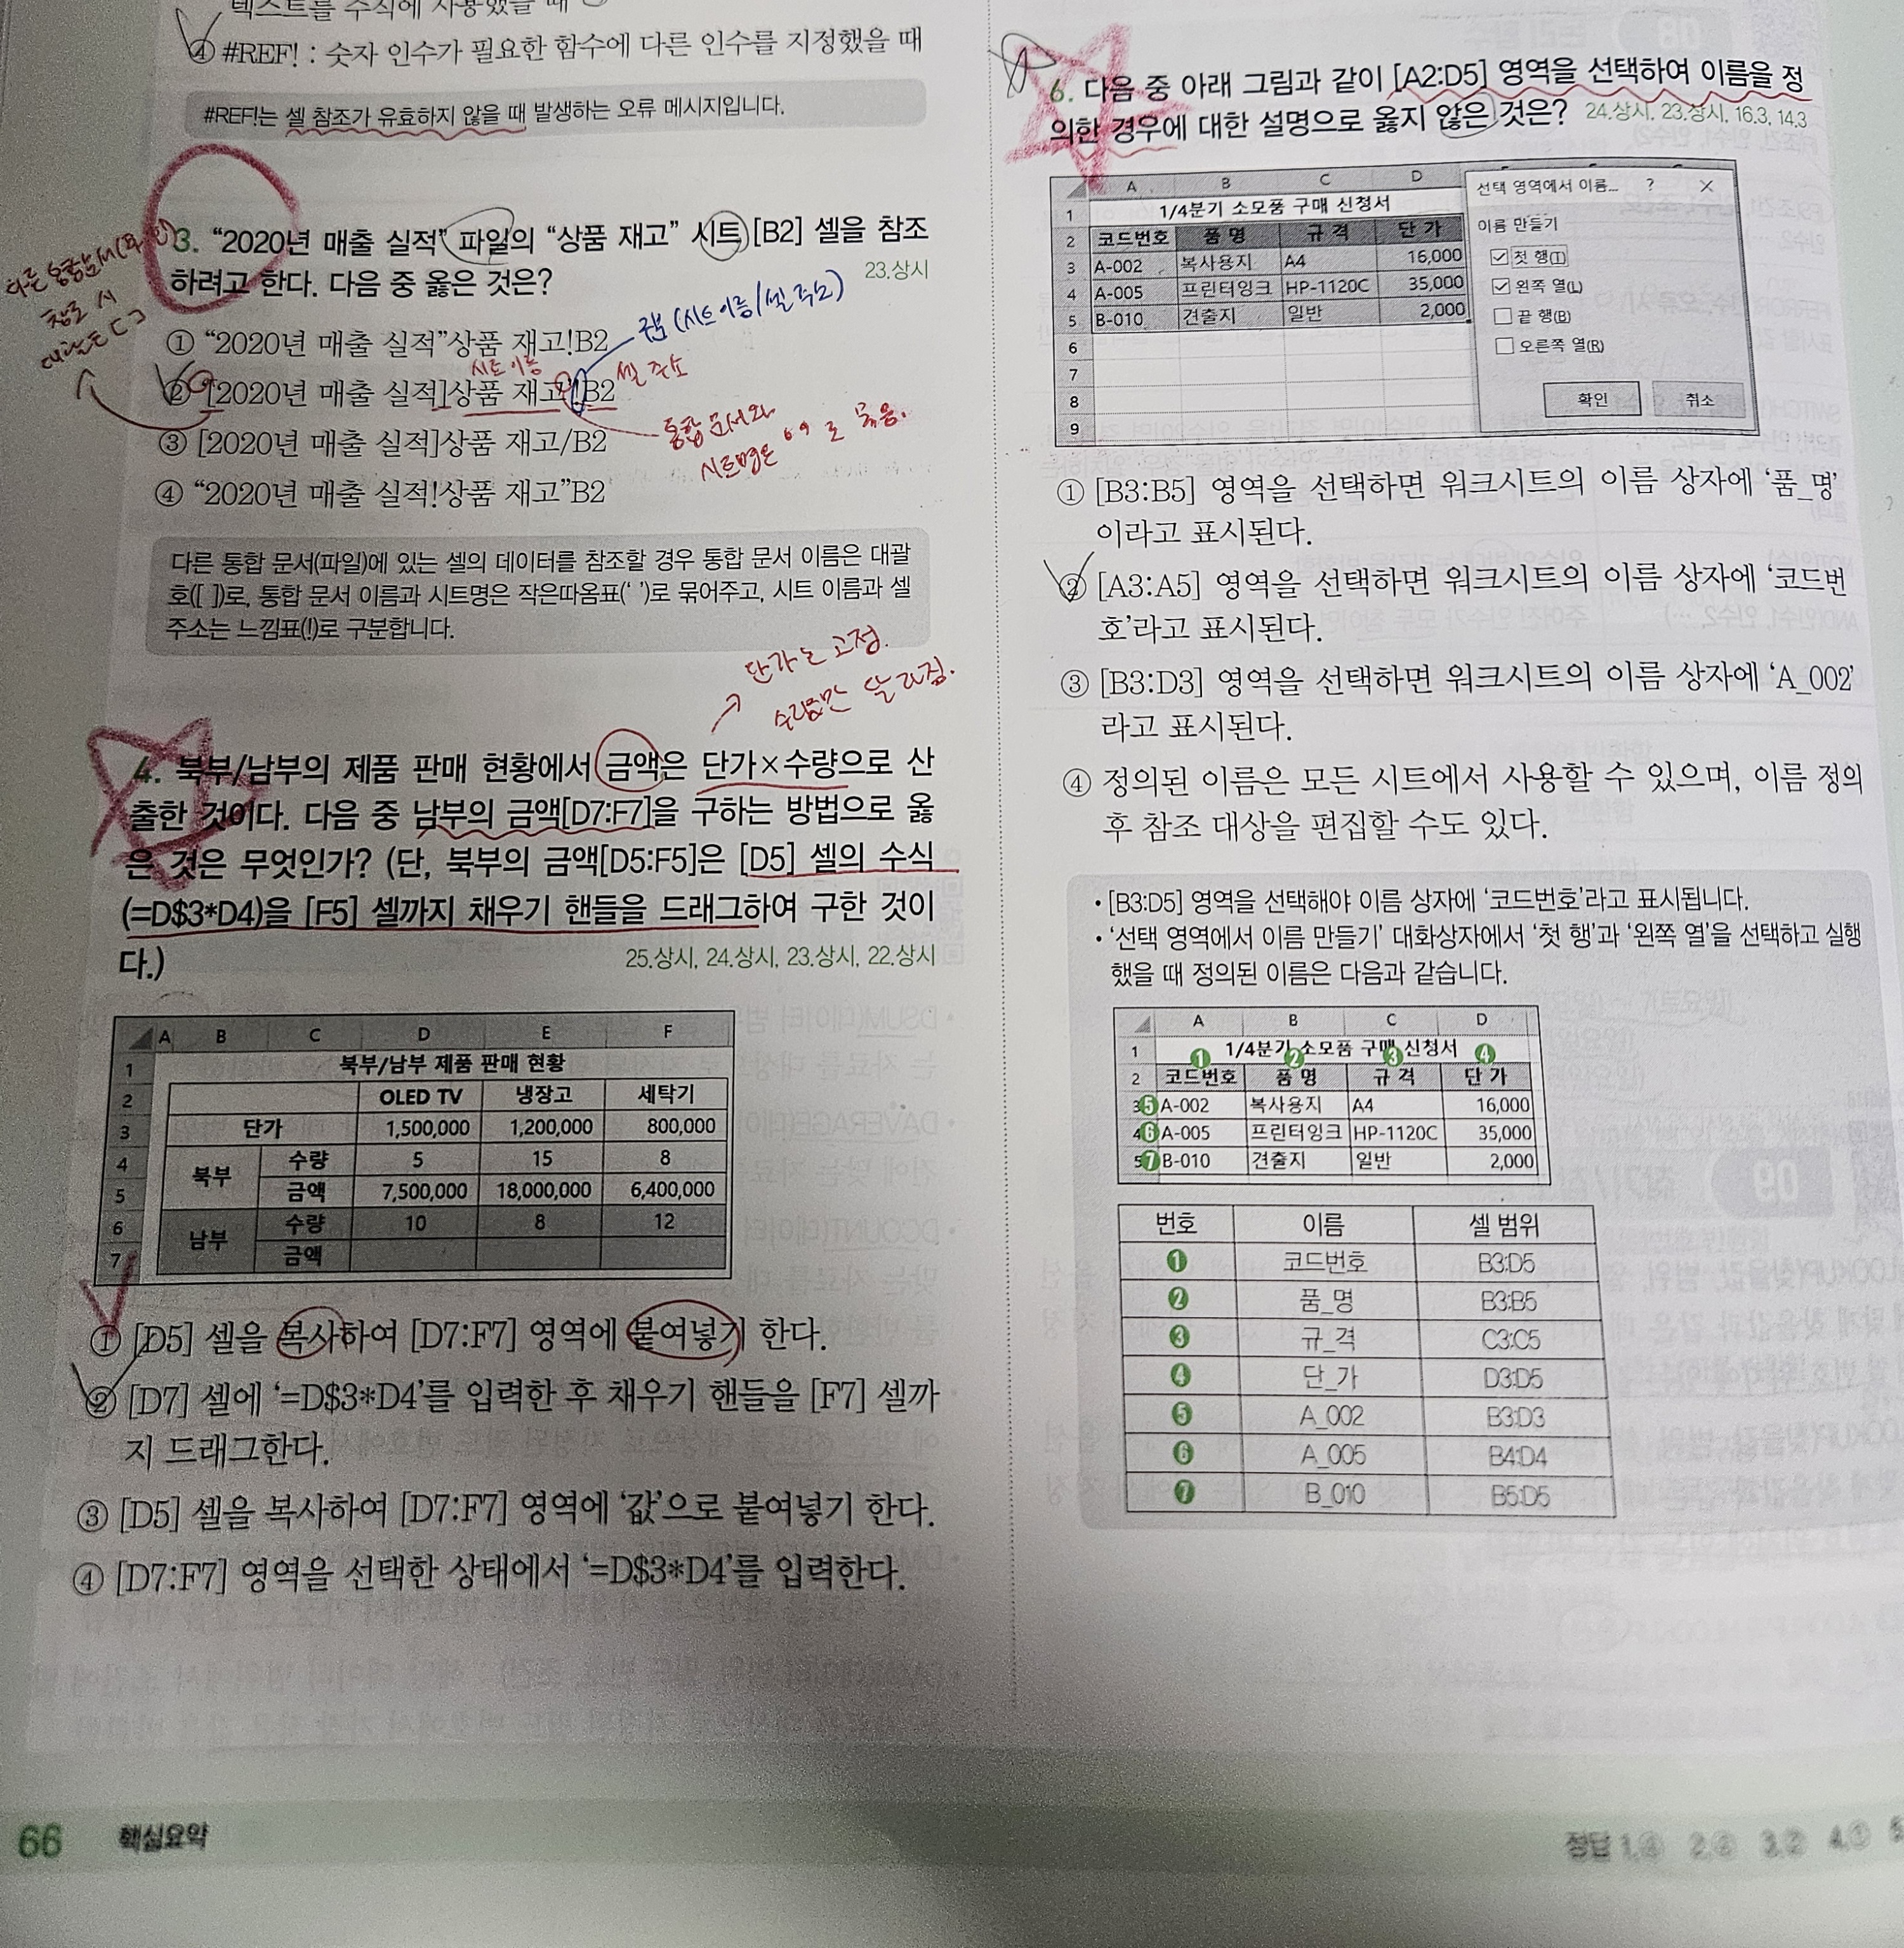 텍스트를 수식에 사용했을 때
④ #REF! : 숫자 인수가 필요한 함수에 다른 인수를 지정했을 때
#REF!는 셀 참조가 유효하지 않을 때 발생하는 오류 메시지입니다.
3. “2020년 매출 실적” 파일의 “상품 재고” 시트 [B2] 셀을 참조
하려고 한다. 다음 중 옳은 것은?
23.상시
참조 시
구분 (시트 이름/셀 주소)
① “2020년 매출 실적”상품 재고!B2
시트 이름
셀 주소
② '[2020년 매출 실적]상품 재고'!B2
통합 문서와
시트명은 ' ' 로 묶음.
③ [2020년 매출 실적]상품 재고/B2
④ “2020년 매출 실적!상품 재고”B2
다른 통합 문서(파일)에 있는 셀의 데이터를 참조할 경우 통합 문서 이름은 대괄
호([ ])로, 통합 문서 이름과 시트명은 작은따옴표(‘ ’)로 묶어주고, 시트 이름과 셀
주소는 느낌표(!)로 구분합니다.
단가는 고정.
수량만 달라짐.
4. 북부/남부의 제품 판매 현황에서 금액은 단가×수량으로 산
출한 것이다. 다음 중 남부의 금액[D7:F7]을 구하는 방법으로 옳
은 것은 무엇인가? (단, 북부의 금액[D5:F5]은 [D5] 셀의 수식
(=D$3*D4)을 [F5] 셀까지 채우기 핸들을 드래그하여 구한 것이
다.)
25.상시, 24.상시, 23.상시, 22.상시
A B C D E F
1 북부/남부 제품 판매 현황
2 OLED TV 냉장고 세탁기
3 단가 1,500,000 1,200,000 800,000
4 북부 수량 5 15 8
5 금액 7,500,000 18,000,000 6,400,000
6 남부 수량 10 8 12
7 금액
① [D5] 셀을 복사하여 [D7:F7] 영역에 붙여넣기 한다.
② [D7] 셀에 ‘=D$3*D4’를 입력한 후 채우기 핸들을 [F7] 셀까
지 드래그한다.
③ [D5] 셀을 복사하여 [D7:F7] 영역에 ‘값’으로 붙여넣기 한다.
④ [D7:F7] 영역을 선택한 상태에서 ‘=D$3*D4’를 입력한다.
6. 다음 중 아래 그림과 같이 [A2:D5] 영역을 선택하여 이름을 정
의한 경우에 대한 설명으로 옳지 않은 것은?
24.상시, 23.상시, 16.3, 14.3
A B C D
1 1/4분기 소모품 구매 신청서
2 코드번호 품 명 규 격 단 가
3 A-002 복사용지 A4 16,000
4 A-005 프린터잉크 HP-1120C 35,000
5 B-010 견출지 일반 2,000
6
7
8
9
선택 영역에서 이름... ? ×
이름 만들기
첫 행(T)
왼쪽 열(L)
끝 행(B)
오른쪽 열(R)
확인 취소
① [B3:B5] 영역을 선택하면 워크시트의 이름 상자에 ‘품_명’
이라고 표시된다.
② [A3:A5] 영역을 선택하면 워크시트의 이름 상자에 ‘코드번
호’라고 표시된다.
③ [B3:D3] 영역을 선택하면 워크시트의 이름 상자에 ‘A_002’
라고 표시된다.
④ 정의된 이름은 모든 시트에서 사용할 수 있으며, 이름 정의
후 참조 대상을 편집할 수도 있다.
• [B3:D5] 영역을 선택해야 이름 상자에 ‘코드번호’라고 표시됩니다.
• ‘선택 영역에서 이름 만들기’ 대화상자에서 ‘첫 행’과 ‘왼쪽 열’을 선택하고 실행
했을 때 정의된 이름은 다음과 같습니다.
A B C D
1 1/4분기 소모품 구매 신청서
❶ ❷ ❸ ❹
2 코드번호 품 명 규 격 단 가
3 ❺ A-002 복사용지 A4 16,000
4 ❻ A-005 프린터잉크 HP-1120C 35,000
5 ❼ B-010 견출지 일반 2,000
번호 이름 셀 범위
❶ 코드번호 B3:D5
❷ 품_명 B3:B5
❸ 규_격 C3:C5
❹ 단_가 D3:D5
❺ A_002 B3:D3
❻ A_005 B4:D4
❼ B_010 B5:D5
66 핵심요약
정답 1.④ 2.② 3.② 4.①